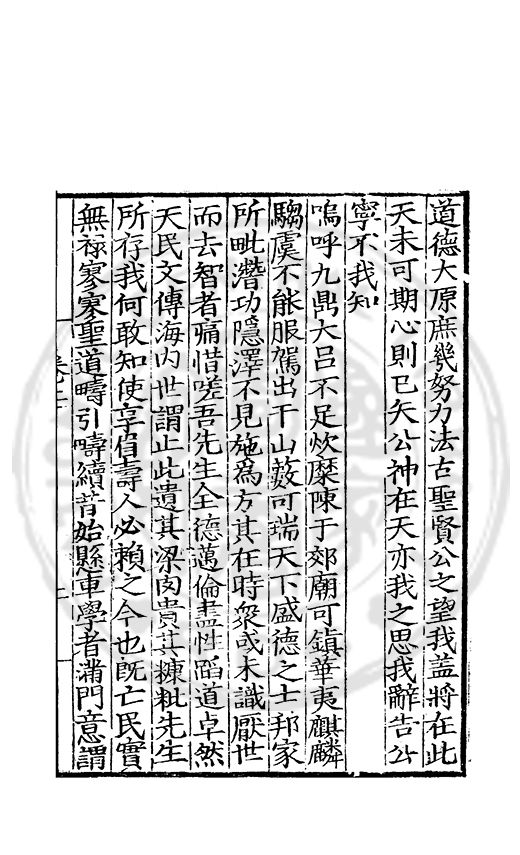 道德大原庶幾努力法古聖賢公之望我盖將在此
天未可期心則已矢公神在天亦我之思我辭告公
寧不我知
嗚呼九鼎大呂不足炊糜陳于郊廟可鎮華夷麒麟
騶虞不能服駕出于山薮可瑞天下盛德之士邦家
所毗潛功隱澤不見施為方其在時衆或未識厭世
而去智者痛惜嗟吾先生全德萬倫盡性蹈道卓然
天民文傳海内世謂止此遺其梁肉貴其糠粃先生
所存我何敢知使享眉壽人必賴之今也既亡民實
無祿寥寥聖道疇引疇續昔始懸車學者滿門意謂